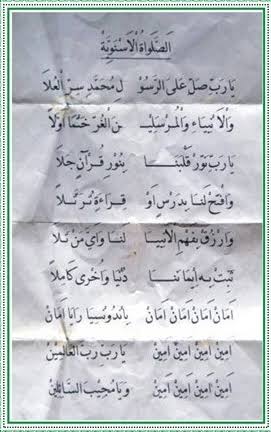 اَلصَّلَوَاةُ الْاَسْنَوِيَّةْ
يَارَبِّ صَلِّ عَلَى الرَّسُوْ لِ مُحَمَّدٍ سِرِّ الْعُلَا
وَالْاَنْبِيَاءِ وَالْمُرْسَلِيْنَ الْغُرِّ خَتْمًا اَوَّلَا
يَارَبِّ نَوِّرْ قَلْبَنَا بِنُوْرِ قُرْآنٍ جَلَا
وَافْتَحْ لَنَا بِدَرْسٍ اَوْ قِرَاءَةٍ تُرَتَّلَا
وَارْزُقْ بِفَهْمِ الْاَنْبِيَا لَنَا وَاَيَّ مَنْ تَلَا
ثَبِّتْ بِهِ اِيْمَانَنَا دُنْيَا وَاُخْرَى كَامِلًا
اَمَانْ اَمَانْ اَمَانْ اَمَانْ بِاِنْدُوْنِيْسِيَّا رَايَا اَمَانْ
اٰمِيْنْ اٰمِيْنْ اٰمِيْنْ اٰمِيْنْ يَارَبِّ رَبَّ الْعَالَمِيْنْ
اٰمِيْنْ اٰمِيْنْ اٰمِيْنْ اٰمِيْنْ وَيَا مُجِيْبَ السَّائِلِيْنْ